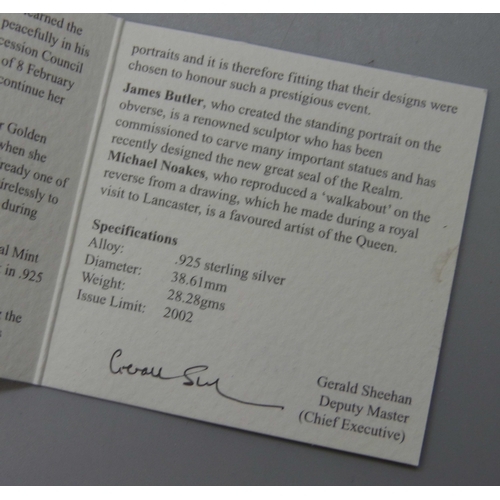 earned the
peacefully in his
cession Council
of 8 February
continue her
r Golden
when she
ready one of
irelessly to
during
al Mint
in .925
the
portraits and it is therefore fitting that their designs were
chosen to honour such a prestigious event.
James Butler, who created the standing portrait on the
obverse, is a renowned sculptor who has been
commissioned to carve many important statues and has
recently designed the new great seal of the Realm.
Michael Noakes, who reproduced a 'walkabout' on the
reverse from a drawing, which he made during a royal
visit to Lancaster, is a favoured artist of the Queen.
Specifications
Alloy: .925 sterling silver
Diameter: 38.61mm
Weight: 28.28gms
Issue Limit: 2002
Gerald Sheehan
Deputy Master
(Chief Executive)